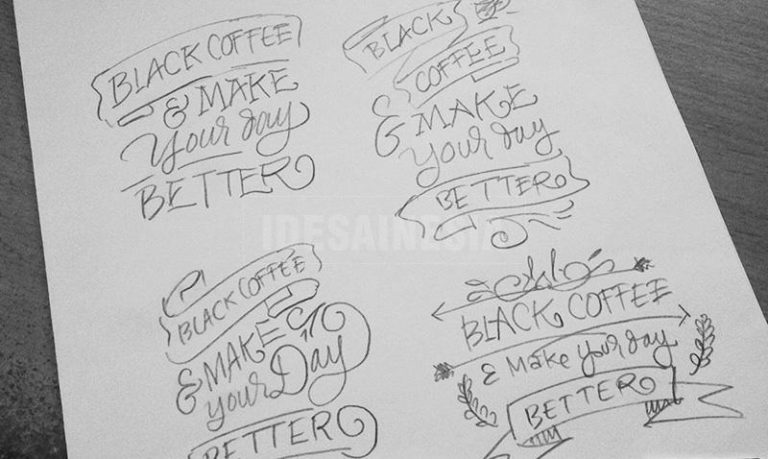 BLACK COFFEE
& MAKE
Your day
BETTER
BLACK
COFFEE
& MAKE
your day
BETTER
IDESAINESIA
BLACK COFFEE
& MAKE
your Day
BETTER
BLACK COFFEE
& Make your day
BETTER